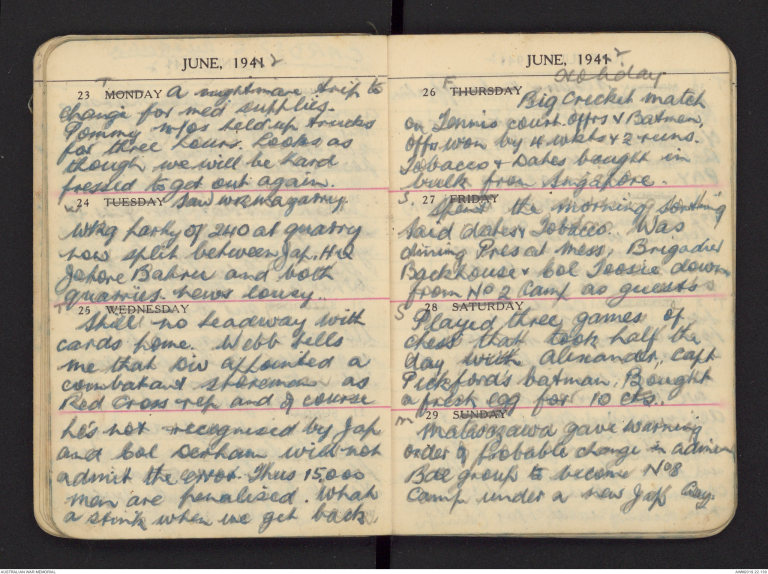 JUNE, 1941 2
23 T MONDAY A nightmare trip to
change for med supplies.
Tommy M/os held up trucks
for three hours. Looks as
though we will be hard
pressed to get out again.
24 W TUESDAY Saw wkng a quarry.
Wkg party of 240 at quarry
now split between Jap. H.Q
Johore Bahru and both
quarries. News lousy.
25 T WEDNESDAY
Still no headway with
cards home. Webb tells
me that Div appointed a
combatant storeman as
Red Cross rep and of course
he's not recognised by Jap
and Col Derham will not
admit the error. Thus 15,000
men are penalised. What
a stink when we get back
JUNE, 1941 2
Holiday
26 F THURSDAY
Big Cricket match
on Tennis court. Offrs v Batmen,
Offrs won by 4 wkts & 2 runs.
Tobacco & Dates bought in
bulk from Singapore.
27 S. FRIDAY
Spent the morning sorting
said dates & Tobacco. Was
dining Pres at Mess, Brigadier
Backhouse & Col Toosie down
from No 2 Camp as guests
28 S SATURDAY
Played three games of
chess that took half the
day with Alexander, Capt
Pickford's batman. Bought
a fresh egg for 10 cts.
29 M SUNDAY
Matsuzawa gave warning
order of probable change in admin
Bde group to become No 8
Camp under a new Jap
AUSTRALIAN WAR MEMORIAL